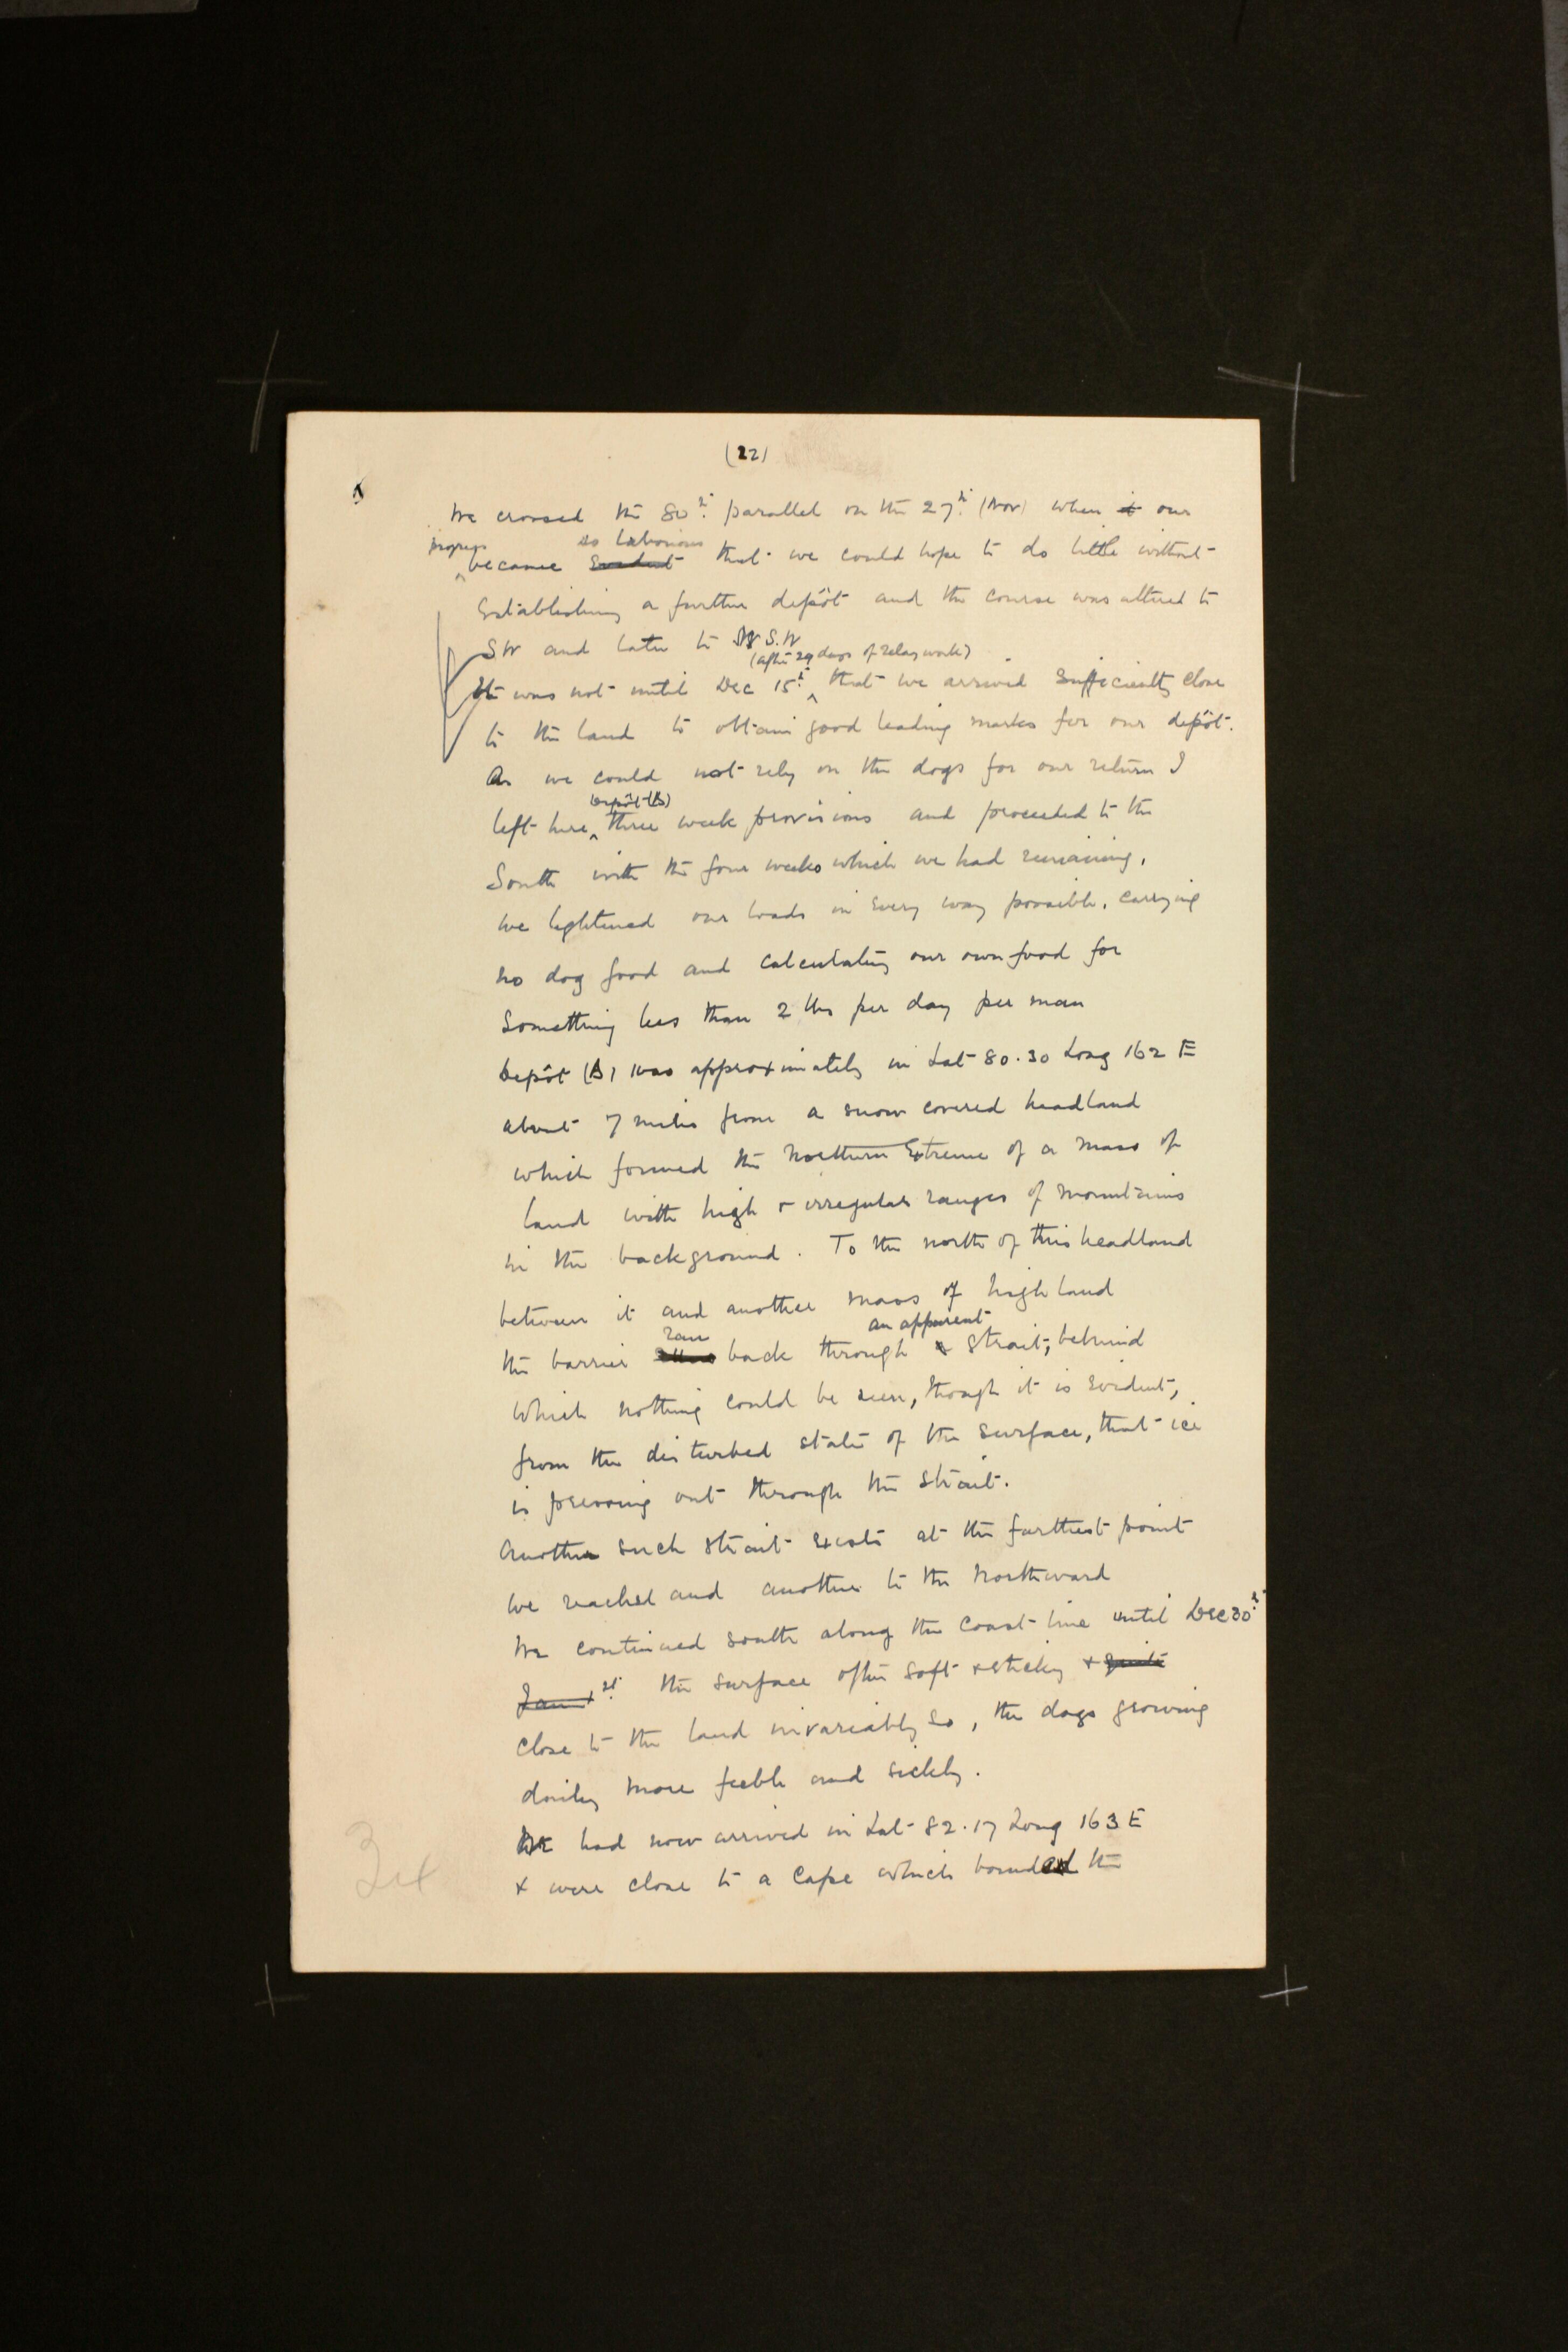 (22)
We crossed the 80th parallel on the 27th (Nov) when it our
progress became evident so laborious that we could hope to do little without
establishing a further depôt and the course was altered to
SW and later to W S.W
It was not until Dec 15th (after 29 days of relay work) that we arrived sufficiently close
to the land to obtain good leading marks for our depôt.
As we could not rely on the dogs for our return I
left here (Depôt B) three week provisions and proceeded to the
South with the four weeks which we had remaining.
we lightened our loads in every way possible, carrying
no dog food and calculating our own food for
something less than 2 lbs per day per man
Depôt (B) was approximately in Lat 80.30 Long 162 E
about 7 miles from a snow covered headland
which formed the Northern Extreme of a mass of
land with high & irregular ranges of mountains
in the background. To the north of this headland
between it and another mass of high land
the barrier ran back through a an apparent strait, behind
which nothing could be seen, though it is evident,
from the disturbed state of the surface, that ice
is pressing out through the strait.
Another such strait exists at the furthest point
we reached and another to the Northward
We continued south along the coast-line until Dec 30th
Jan 1st the surface often soft & sticky & quite
close to the land invariably so, the dogs growing
daily more feeble and sickly.
We had now arrived in Lat 82.17 Long 163 E
& were close to a Cape which bounded the